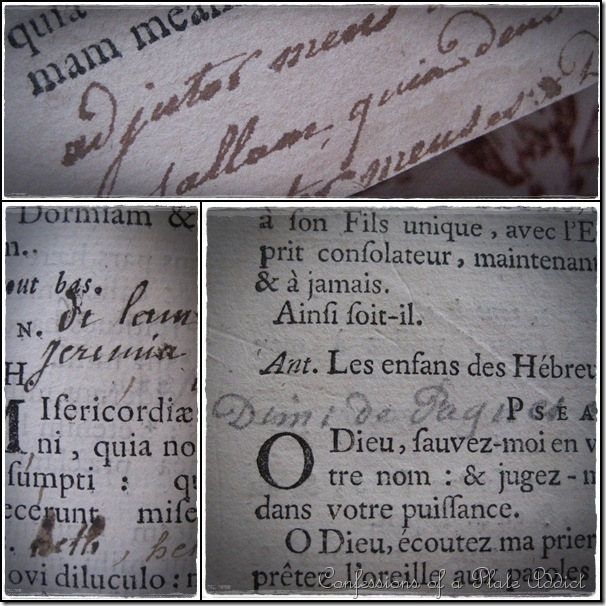 quia
mam meam
adjutor meus
sallam, quia deus
tor meus es: &
Dormiam &
m..
out bas.
N. de lam
jeremia
H.
MIſericordiæ
ni, quia no
ſumpti : qu
ecerunt miſe
. Beth, he
ovi diluculo :
à ſon Fils unique, avec l'E
prit conſolateur, maintenant
& à jamais.
Ainſi ſoit-il.
Ant. Les enfans des Hébreu
Dim: de Paques PSEA
O Dieu, ſauvez-moi en v
tre nom : & jugez-m
dans votre puiſſance.
O Dieu, écoutez ma prier
prêtez l'oreille aux paroles
Confessions of a Plate Addict